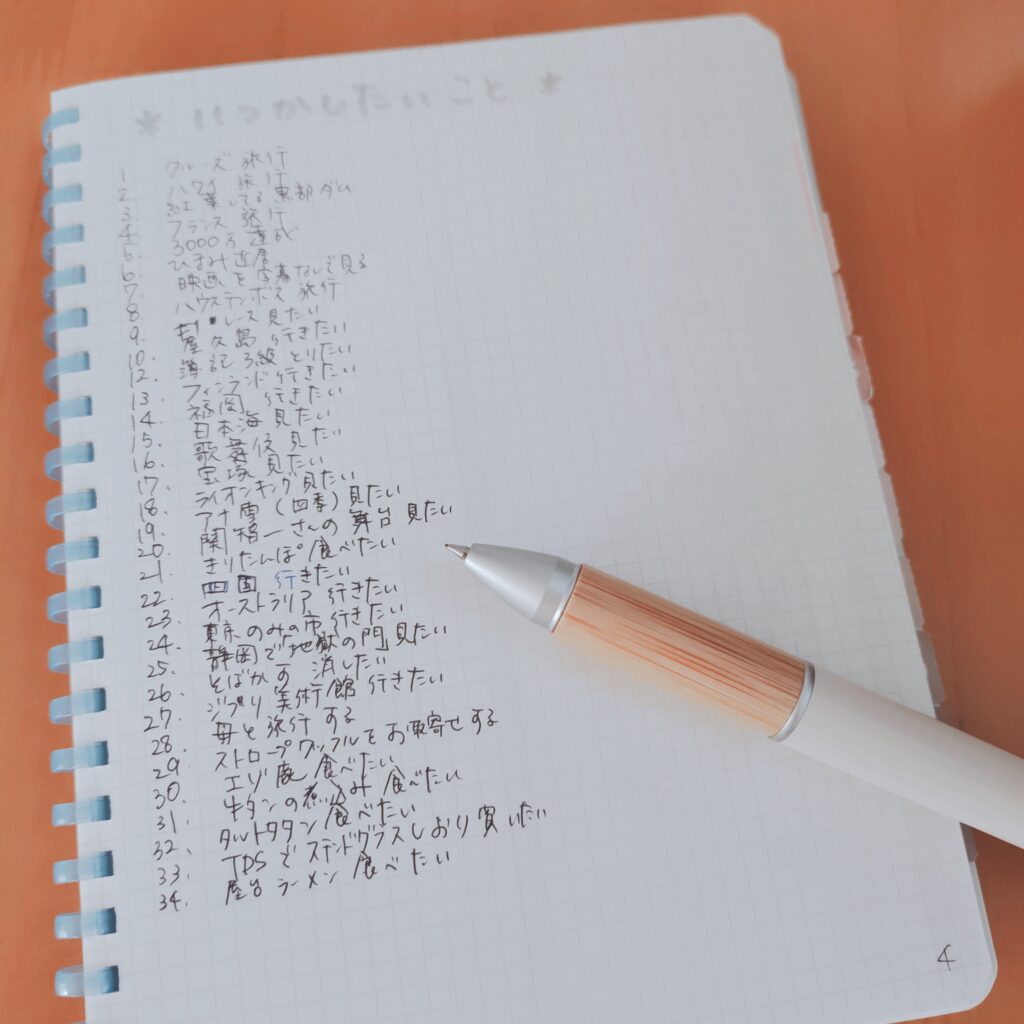 * いつかしたいこと *
1. クルーズ 旅行
2. ハワイ 旅行
3. 紅葉してる 黒部ダム
4. フランス 旅行
5. 3000万 達成
6. ひまみ
7. 映画を字幕なしで見る
8. ハウステンボス 旅行
9. レース 見たい
10. 屋久島 行きたい
12. 簿記3級 とりたい
13. フィンランド 行きたい
14. 福岡 行きたい
15. 日本海 見たい
16. 歌舞伎 見たい
17. 宝塚 見たい
18. ライオンキング 見たい
19. アナ雪(四季)見たい
20. 蘭 一さんの 舞台 見たい
21. きりたんぽ 食べたい
22. 四国 行きたい
23. オーストラリア 行きたい
24. 東京のみの市 行きたい
25. 静岡で「地獄の門」見たい
26. そばかす 消したい
27. ジブリ 美術館 行きたい
28. 母と 旅行 する
29. ストロープワッフルを お取寄せする
30. エゾ鹿 食べたい
31. 牛タンの煮込み 食べたい
32. タルトタタン 食べたい
33. TDSで ステンドグラスしおり 買いたい
34. 屋台 ラーメン 食べたい
4